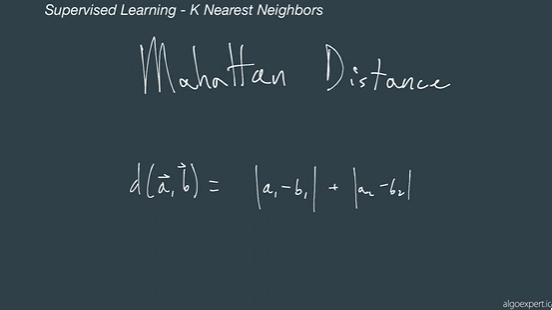 Supervised Learning - K Nearest Neighbors
Mahattan Distance
d(a⃗, b⃗) = |a₁ - b₁| + |a₂ - b₂|
algoexpert.io